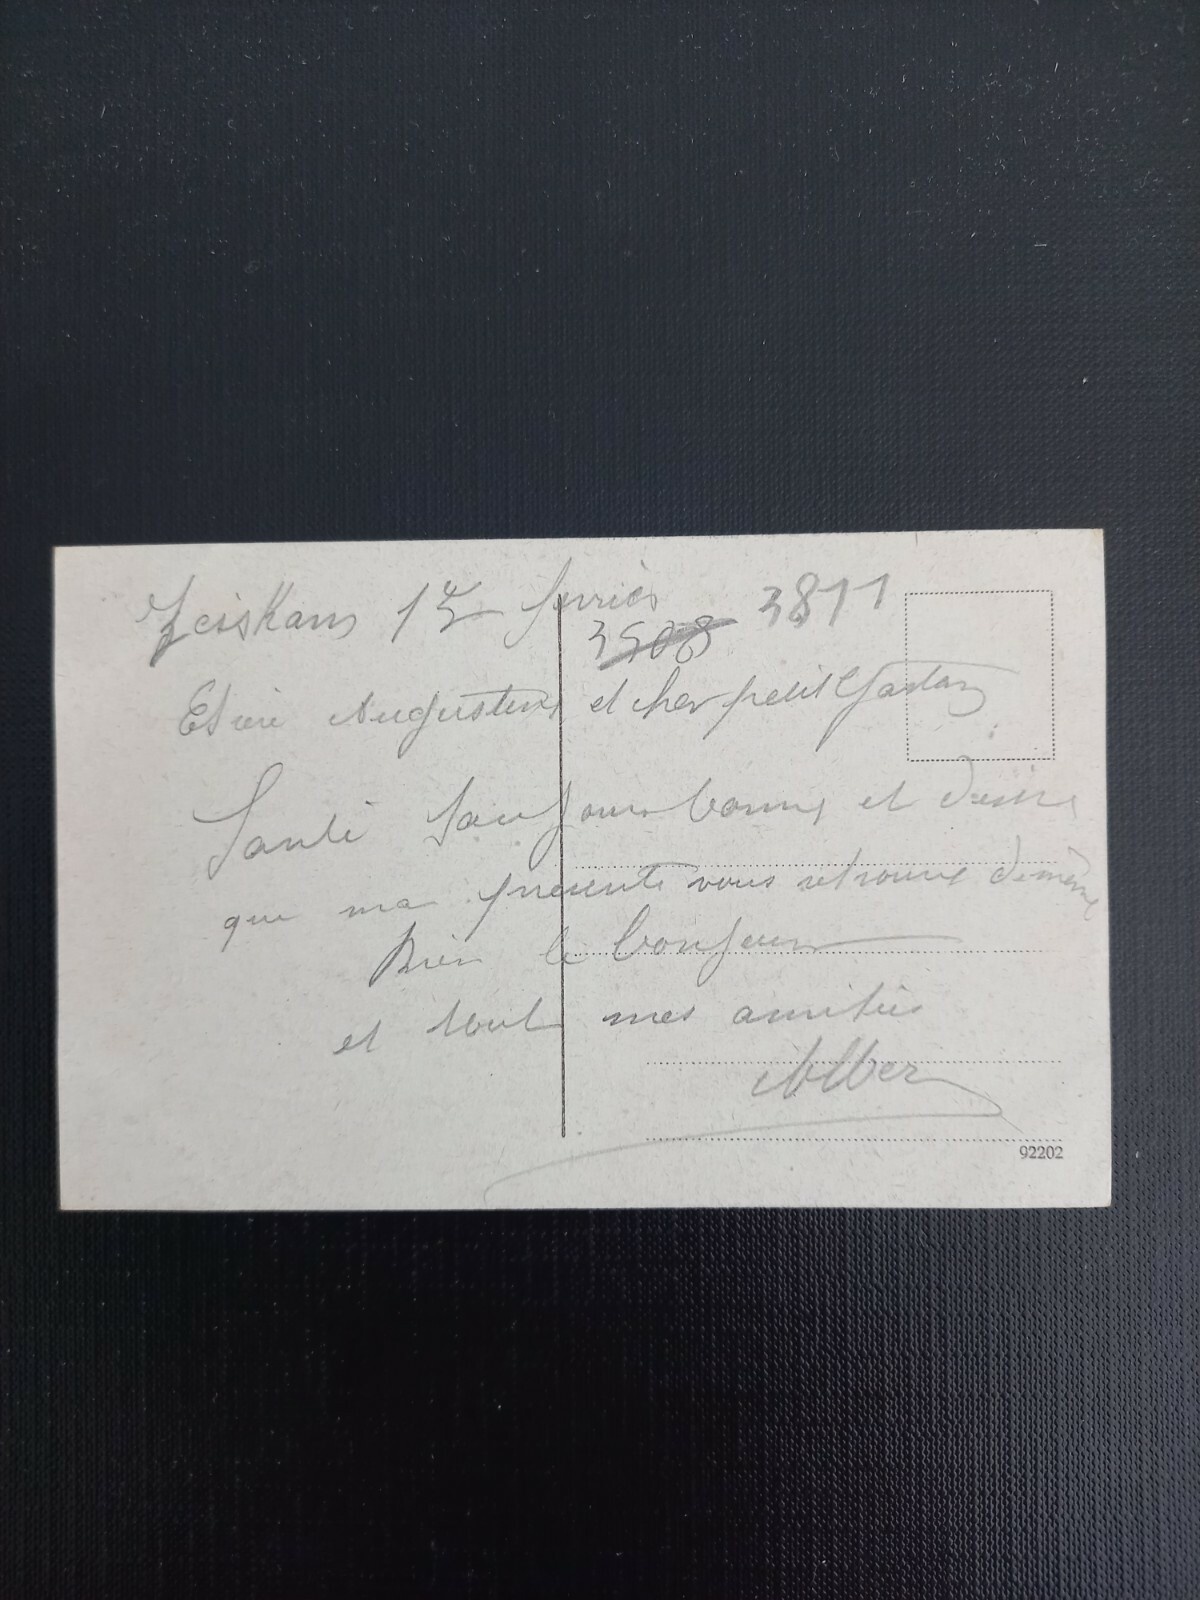 Zeiskam 15 fevrier
3508 3811
Chère Augustine et cher petit Gaston
Santé toujours bonne et désire
que ma présente vous retrouve de même
Bien le bonjour
et tout mes amitiés
Alber
92202